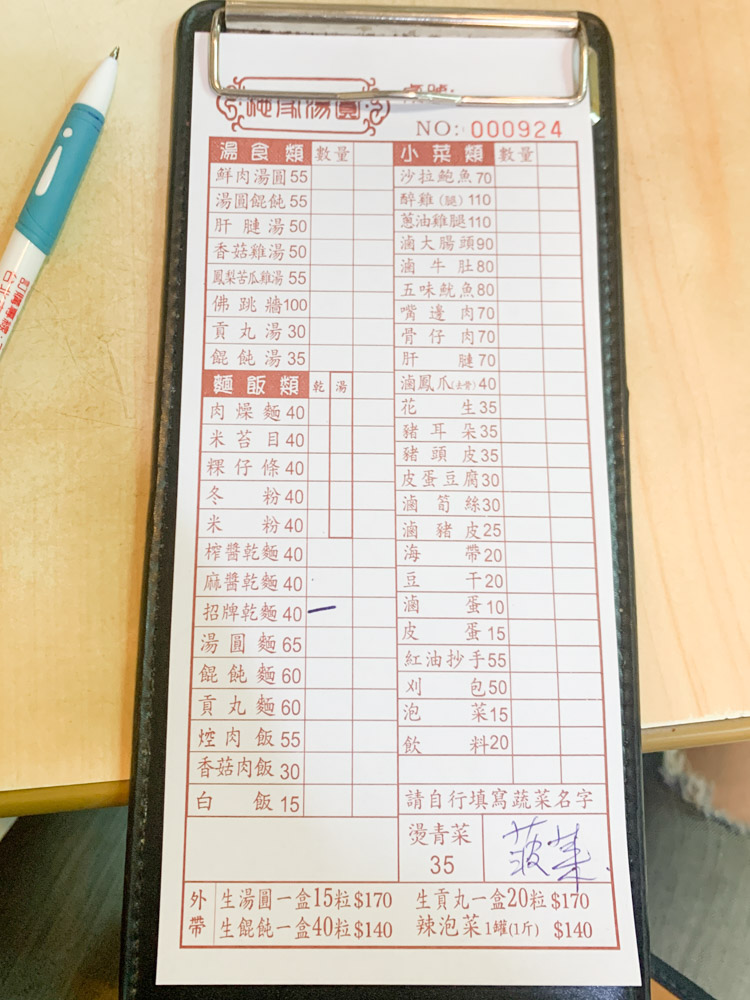 湯圓
NO: 000924
湯食類 數量
鮮肉湯圓 55
湯圓餛飩 55
肝膁湯 50
香菇雞湯 50
鳳梨苦瓜雞湯 55
佛跳牆 100
貢丸湯 30
餛飩湯 35
麵飯類 乾 湯
肉燥麵 40
米苔目 40
粿仔條 40
冬粉 40
米粉 40
榨醬乾麵 40
麻醬乾麵 40
招牌乾麵 40 一
湯圓麵 65
餛飩麵 60
貢丸麵 60
焢肉飯 55
香菇肉飯 30
白飯 15
小菜類 數量
沙拉鮑魚 70
醉雞(腿) 110
蔥油雞腿 110
滷大腸頭 90
滷牛肚 80
五味魷魚 80
嘴邊肉 70
骨仔肉 70
肝膁 70
滷鳳爪(去骨) 40
花生 35
豬耳朵 35
豬頭皮 35
皮蛋豆腐 30
滷筍絲 30
滷豬皮 25
海帶 20
豆干 20
滷蛋 10
皮蛋 15
紅油抄手 55
刈包 50
泡菜 15
飲料 20
請自行填寫蔬菜名字
燙青菜 35 菠菜
外帶
生湯圓一盒15粒$170 生貢丸一盒20粒$170
生餛飩一盒40粒$140 辣泡菜1罐(1斤) $140